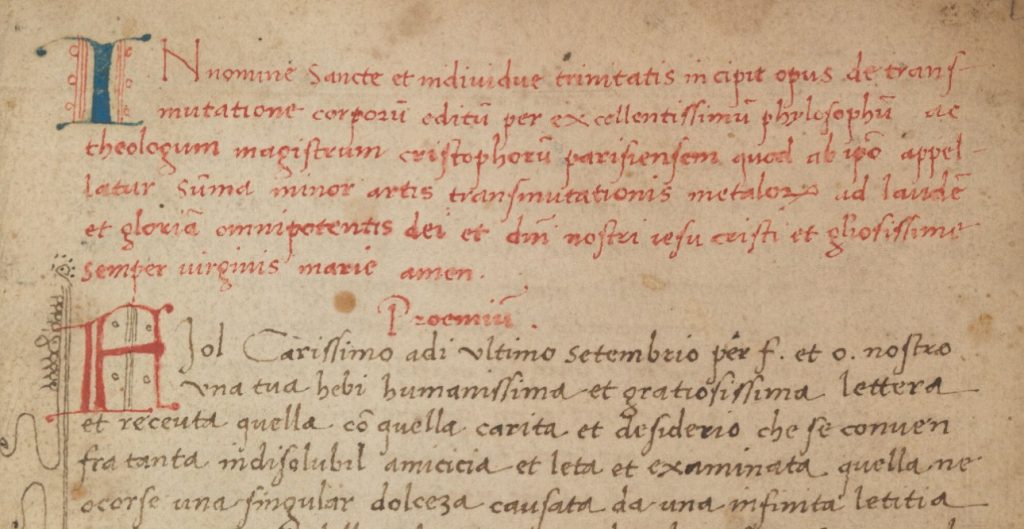 IN nomine Sancte et individue trinitatis incipit opus de trans-
mutatione corporū editū per excellentissimū phylosophū ac
theologum magistrum cristophorū parisiensem quod ab ipō appel-
latur Sūma minor artis transmutationis metaloꝝ ad laudē
et gloriā omnipotentis dei et dn̄i nostri iesu cristi et gl̄iosissime
semper virginis marie amen.
Proemiū.
A Jol Carissimo adi ultimo setembrio per f. et o. nostro
una tua hebi humanissima et gratiosissima lettera
et receuta quella cō quella carita et desiderio che se conven
fra tanta indisolubil amicicia et leta et examinata quella ne
ocorse una singular dolceza causata da una infinita letitia